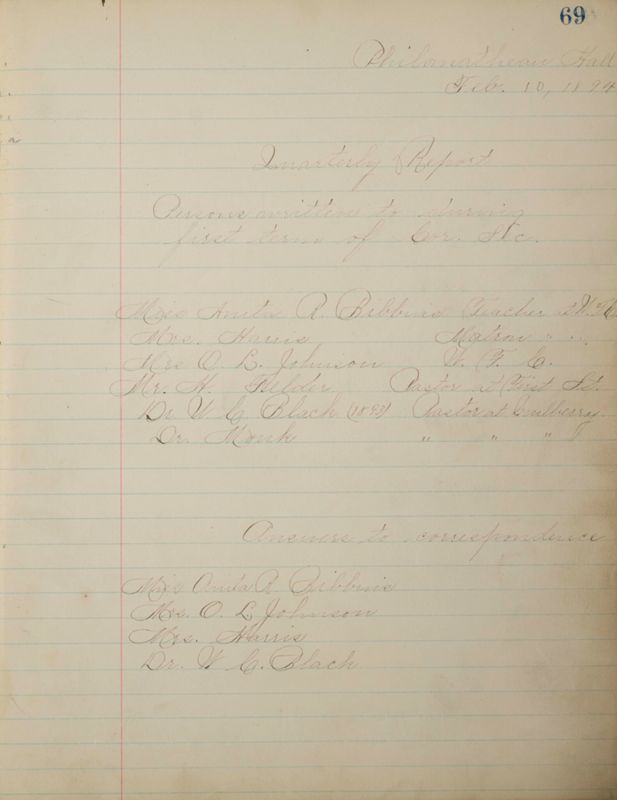 69
Philomathean Hall
Feb. 10, 1894
Quarterly Report
Persons written to during
first term of Cor. Sec.
Miss Anita R. Bibbins Teacher at W. F.
Mrs. Harris Matron " "
Mrs O. L. Johnson W. F. C.
Mr. H. Felder Pastor at First St.
Dr W C Black (1893) Pastor at Mulberry
Dr. Monk " " "
Answers to correspondence
Miss Anita R. Bibbins
Mrs. O. L. Johnson
Mrs. Harris
Dr. W C. Black